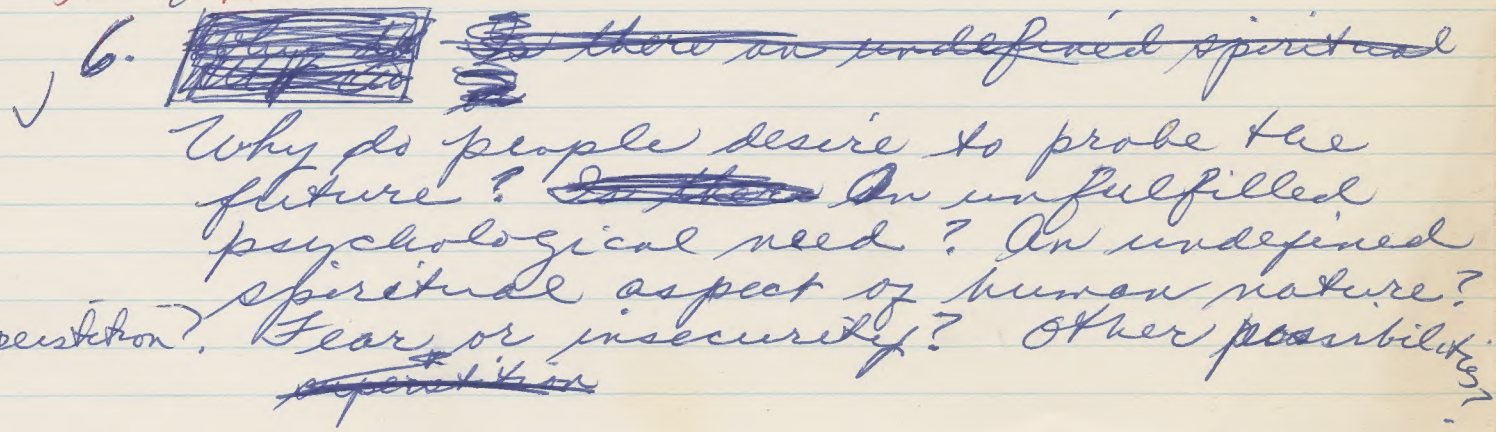 6. Is there an undefined spiritual
Why do people desire to probe the
future? Is there An unfulfilled
psychological need? An undefined
spiritual aspect of human nature?
Fear or insecurity? Other possibilities?
superstition